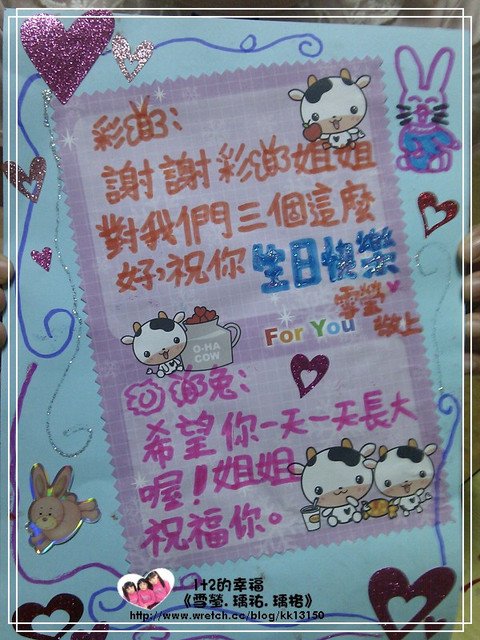 彩卿:
謝謝彩卿姐姐
對我們三個這麼
好,祝你生日快樂
雪瑩
敬上
O-HA
COW
For You
卿兔:
希望你一天一天長大
喔!姐姐
祝福你。
1+2的幸福
《雪瑩.瑀祐.瑀格》
http://www.wretch.cc/blog/kk13150